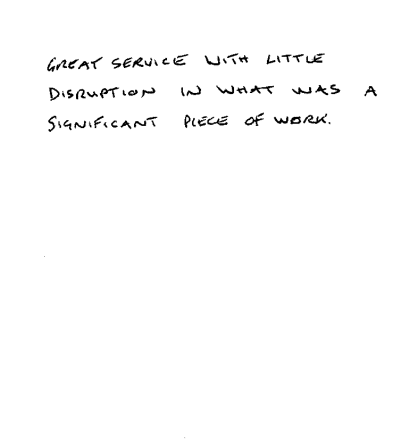 GREAT SERVICE WITH LITTLE
DISRUPTION IN WHAT WAS A
SIGNIFICANT PIECE OF WORK.